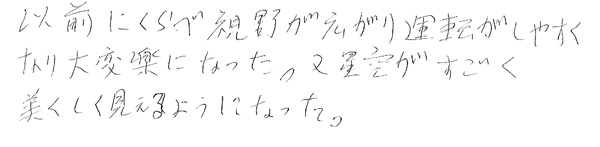 以前にくらべ視野が広がり運転がしやすく
なり大変楽になった。又星空がすごく
美くしく見えるようになった。